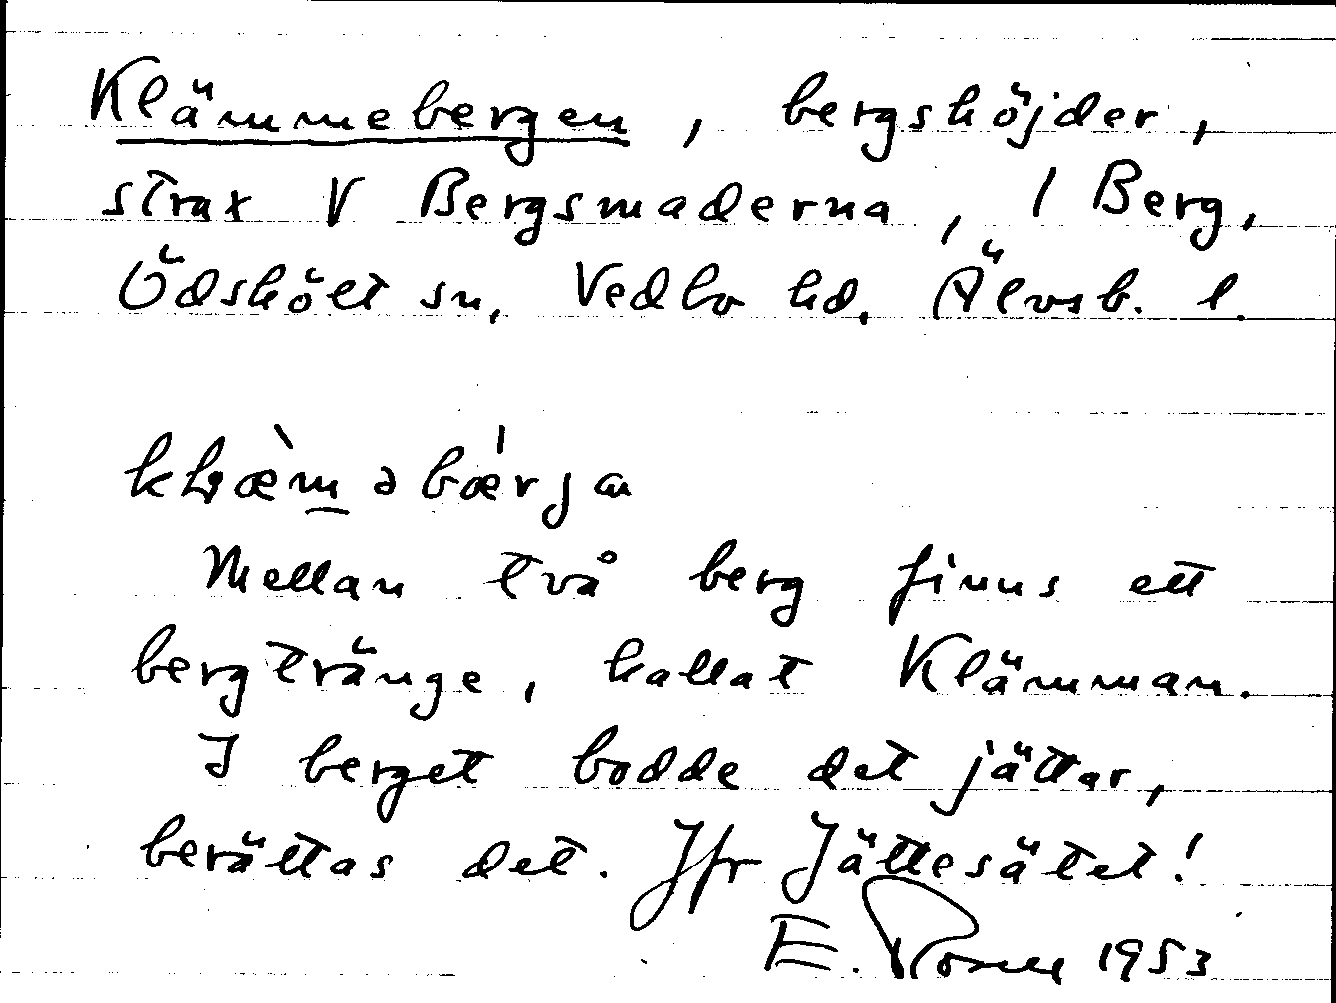 Klämmebergen, bergshöjder,
strax V Bergsmaderna, i Berg,
Ödskölt sn, Vedbo hd, Älvsb. l.
Mellan två berg finns ett
bergtränge, kallat Klämman.
I berget bodde det jättar,
berättas det. Jfr Jättesätet!
E. 1953